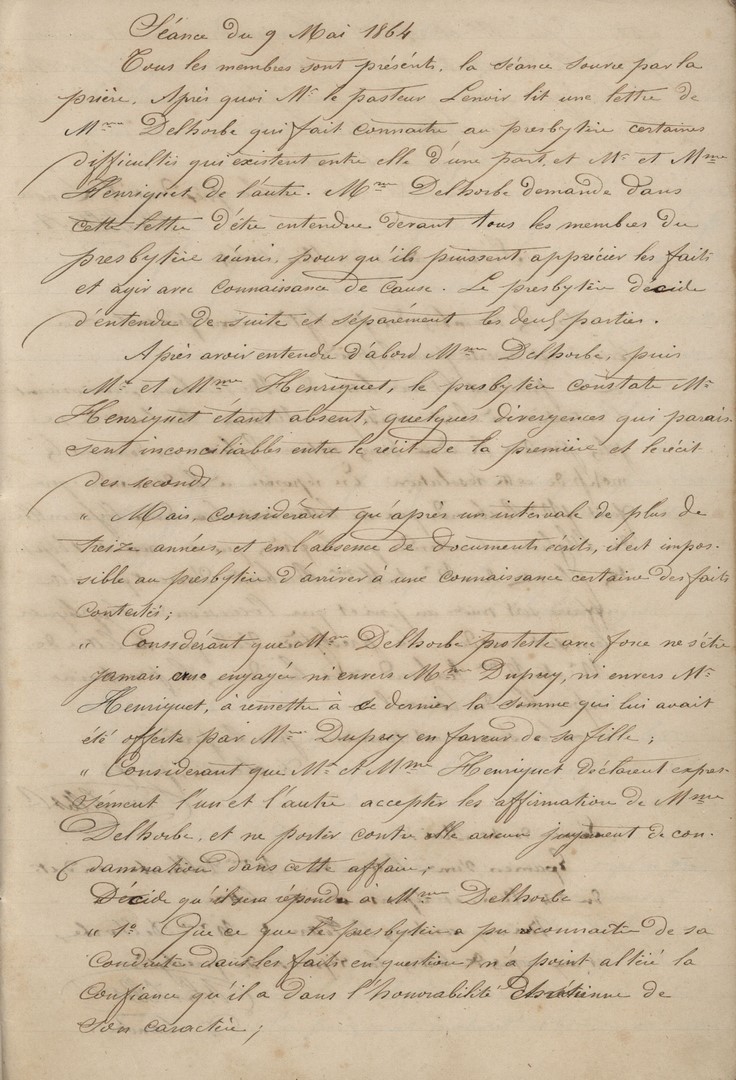 Séance du 9 Mai 1864
Tous les membres sont présents. la séance s'ouvre par la
prière. Après quoi Mr le pasteur Lenoir lit une lettre de
Mme Delhorbe qui fait connaitre au presbytère certaines
difficultés qui existent entre elle d'une part, et Mr et Mme
Henriquet de l'autre. Mme Delhorbe demande dans
cette lettre d'être entendue devant tous les membres du
presbytère réunis, pour qu'ils puissent apprécier les faits
et agir avec connaissance de cause. Le presbytère décide
d'entendre de suite et séparément les deux parties.
Après avoir entendu d'abord Mme Delhorbe, puis
Mr et Mme Henriquet, le presbytère constate Mr
Henriquet étant absent, quelques divergences qui parais-
sent inconciliables entre le récit de la première et le récit
des seconds
" Mais, considérant qu'après un intervale de plus de
treize années, et en l'absence de documents écrits, il est impos-
sible au presbytère d'arriver à une connaissance certaine des faits
contestés;
" Considérant que Mme Delhorbe proteste avec force ne s'être
jamais engagée ni envers Mme Dupuy, ni envers Mr
Henriquet, à remettre à ce dernier la somme qui lui avait
été offerte par Mme Dupuy en faveur de sa fille;
" Considérant que Mr et Mme Henriquet déclarent expres-
sément l'un et l'autre accepter les affirmation de Mme
Delhorbe, et ne porter contre elle aucun jugement de con-
damnation dans cette affaire;
Décide qu'il sera répondu à Mme Delhorbe
" 1o Que ce que le presbytère a pu reconnaitre de sa
conduite dans les faits en question, n'a point altéré la
confiance qu'il a dans l'honorabilité chrétienne de
son caractère;